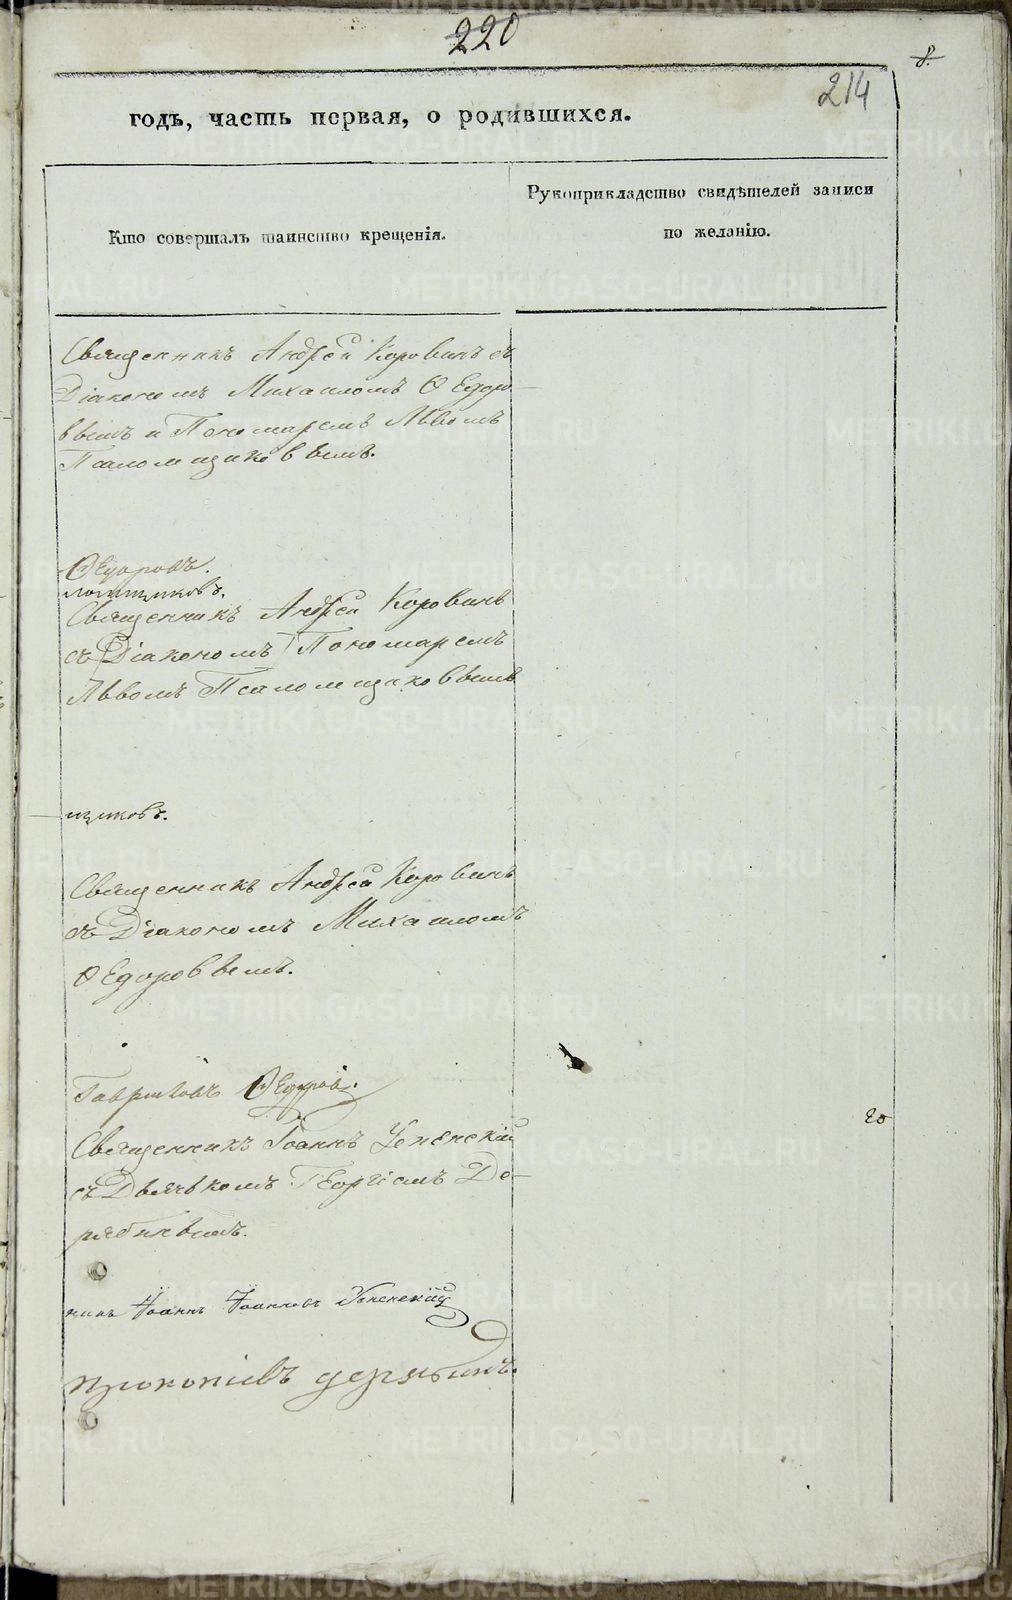 220
8.
214
годъ, часть первая, о родившихся.
Кто совершалъ таинство крещенія.
Рукоприкладство свидѣтелей записи
по желанію.
Священникъ Андрей Коровинъ съ
Діакономъ Михаиломъ Ѳедоро-
вымъ и Пономаремъ Львомъ
Псаломщиковымъ.
Ѳедоровъ.
ломщиковъ.
Священникъ Андрей Коровинъ
съ Діакономъ Пономаремъ
Львомъ Псаломщиковымъ
щиковъ.
Священникъ Андрей Коровинъ
съ Діакономъ Михаиломъ
Ѳедоровымъ.
Гавриловъ Ѳедоров.
20
Священникъ Іоаннъ Успенскій
съ Дьячкомъ Георгіемъ Де-
рябинымъ.
никъ Іоаннъ Іоанновъ Успенскій
Прокопіевъ Дерябинъ.
METRIKI.GASO-URAL.RU